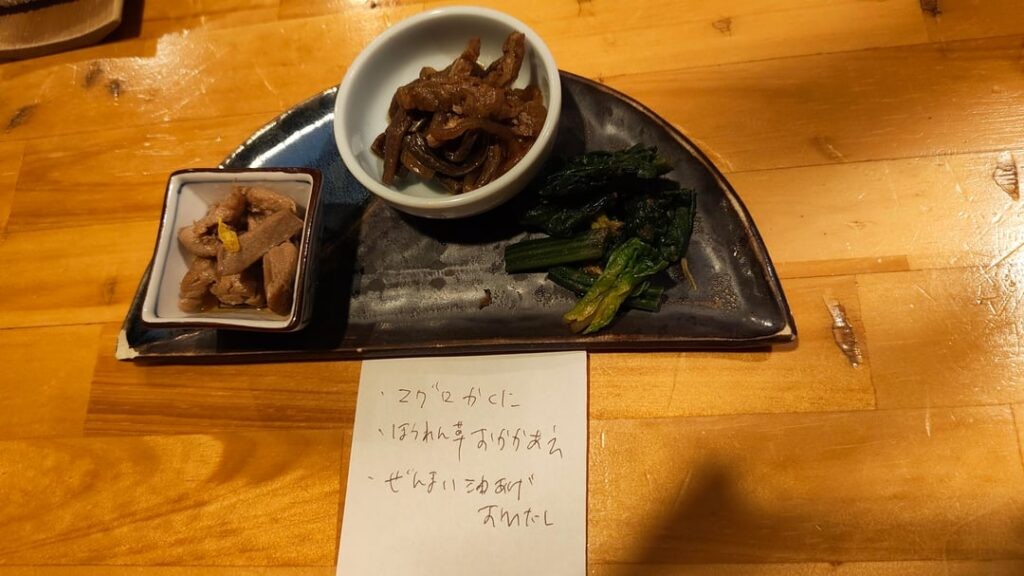 ・マグロかくに
・ほうれん草おかかあえ
・ぜんまい油あげ
おひたし